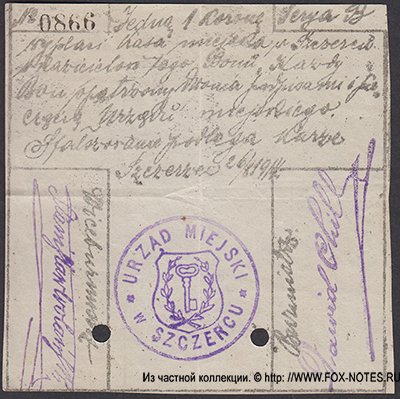 No 0866 Jedną 1 Koronę Serja B
wypłaci Kasa miejska w Szczercu
okazicielowi tego Bonu. Każdy
Bon opatrzony dwoma podpisami i
pieczęcią Urzędu miejskiego.
Sfałszowanie podlega Karze
Szczerzec 1914
Wiceburmistrz
URZĄD MIEJSKI
W SZCZERCU
Burmistrz
Из частной коллекции. © http://www.FOX-NOTES.RU